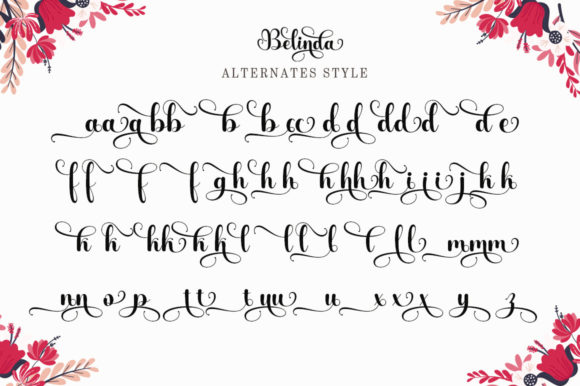 Belinda
ALTERNATES STYLE
a a a b b b b c c d d d d d d e
f f f f g h h h h h i i i j k k
k k h k k l l l l l l l m m m
n n o p t t t y u u u x x x y z